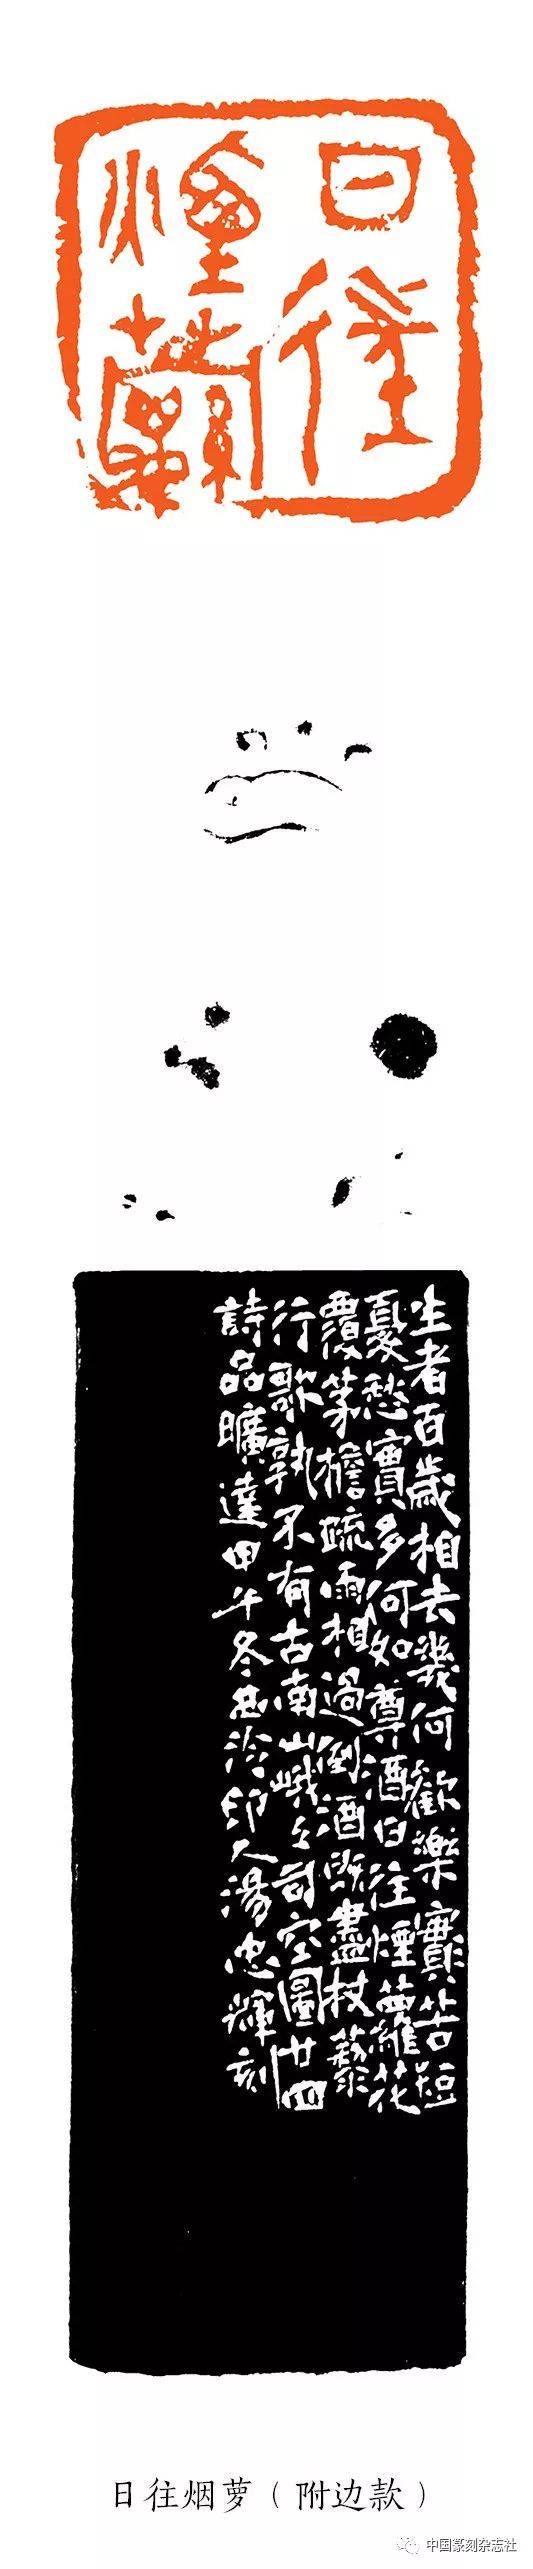 日往
煙蘿
生者百歲相去幾何歡樂實苦短
憂愁實多何如尊酒日往煙蘿花
覆茅檐疏雨相過倒酒既盡杖藜
行歌孰不有古南山峨々司空圖廿四
詩品曠達甲午冬西泠印人湯忠輝刻
日往烟萝（附边款）
中国篆刻杂志社